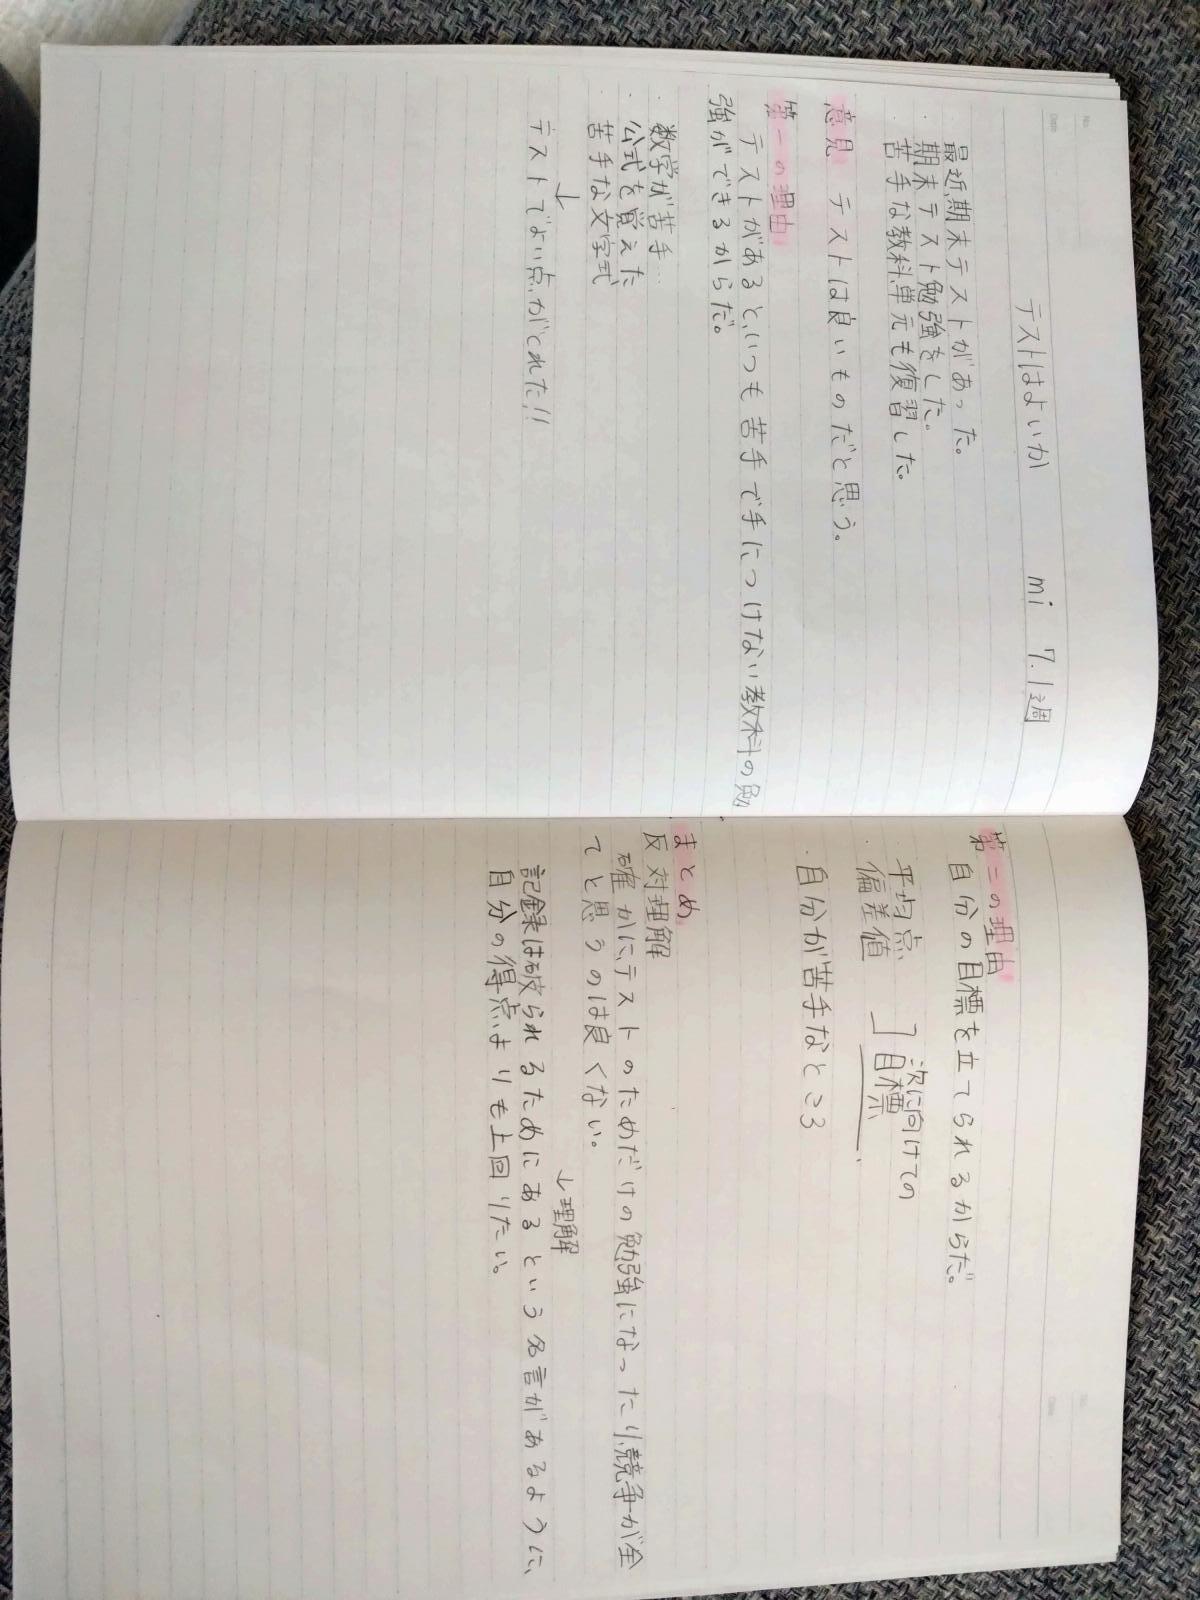 テストはよいか mi 7.1週
最近、期末テストがあった。
・期末テスト勉強をした。
・苦手な教科、単元も復習した。
意見 テストは良いものだと思う。
第一の理由
テストがあると、いつも苦手で手につけない教科の勉
強ができるからだ。
・数学が苦手…
・公式を覚えた
苦手な文字式
↓
テストでよい点がとれた!!
第二の理由
自分の目標を立てられるからだ。
・平均点
偏差値
次に向けての
目標
・自分が苦手なところ
まとめ
反対理解
確かに、テストのためだけの勉強になったり、競争が全
てと思うのは良くない。
↓理解
記録は破られるためにあるという名言があるように、
自分の得点よりも上回りたい。